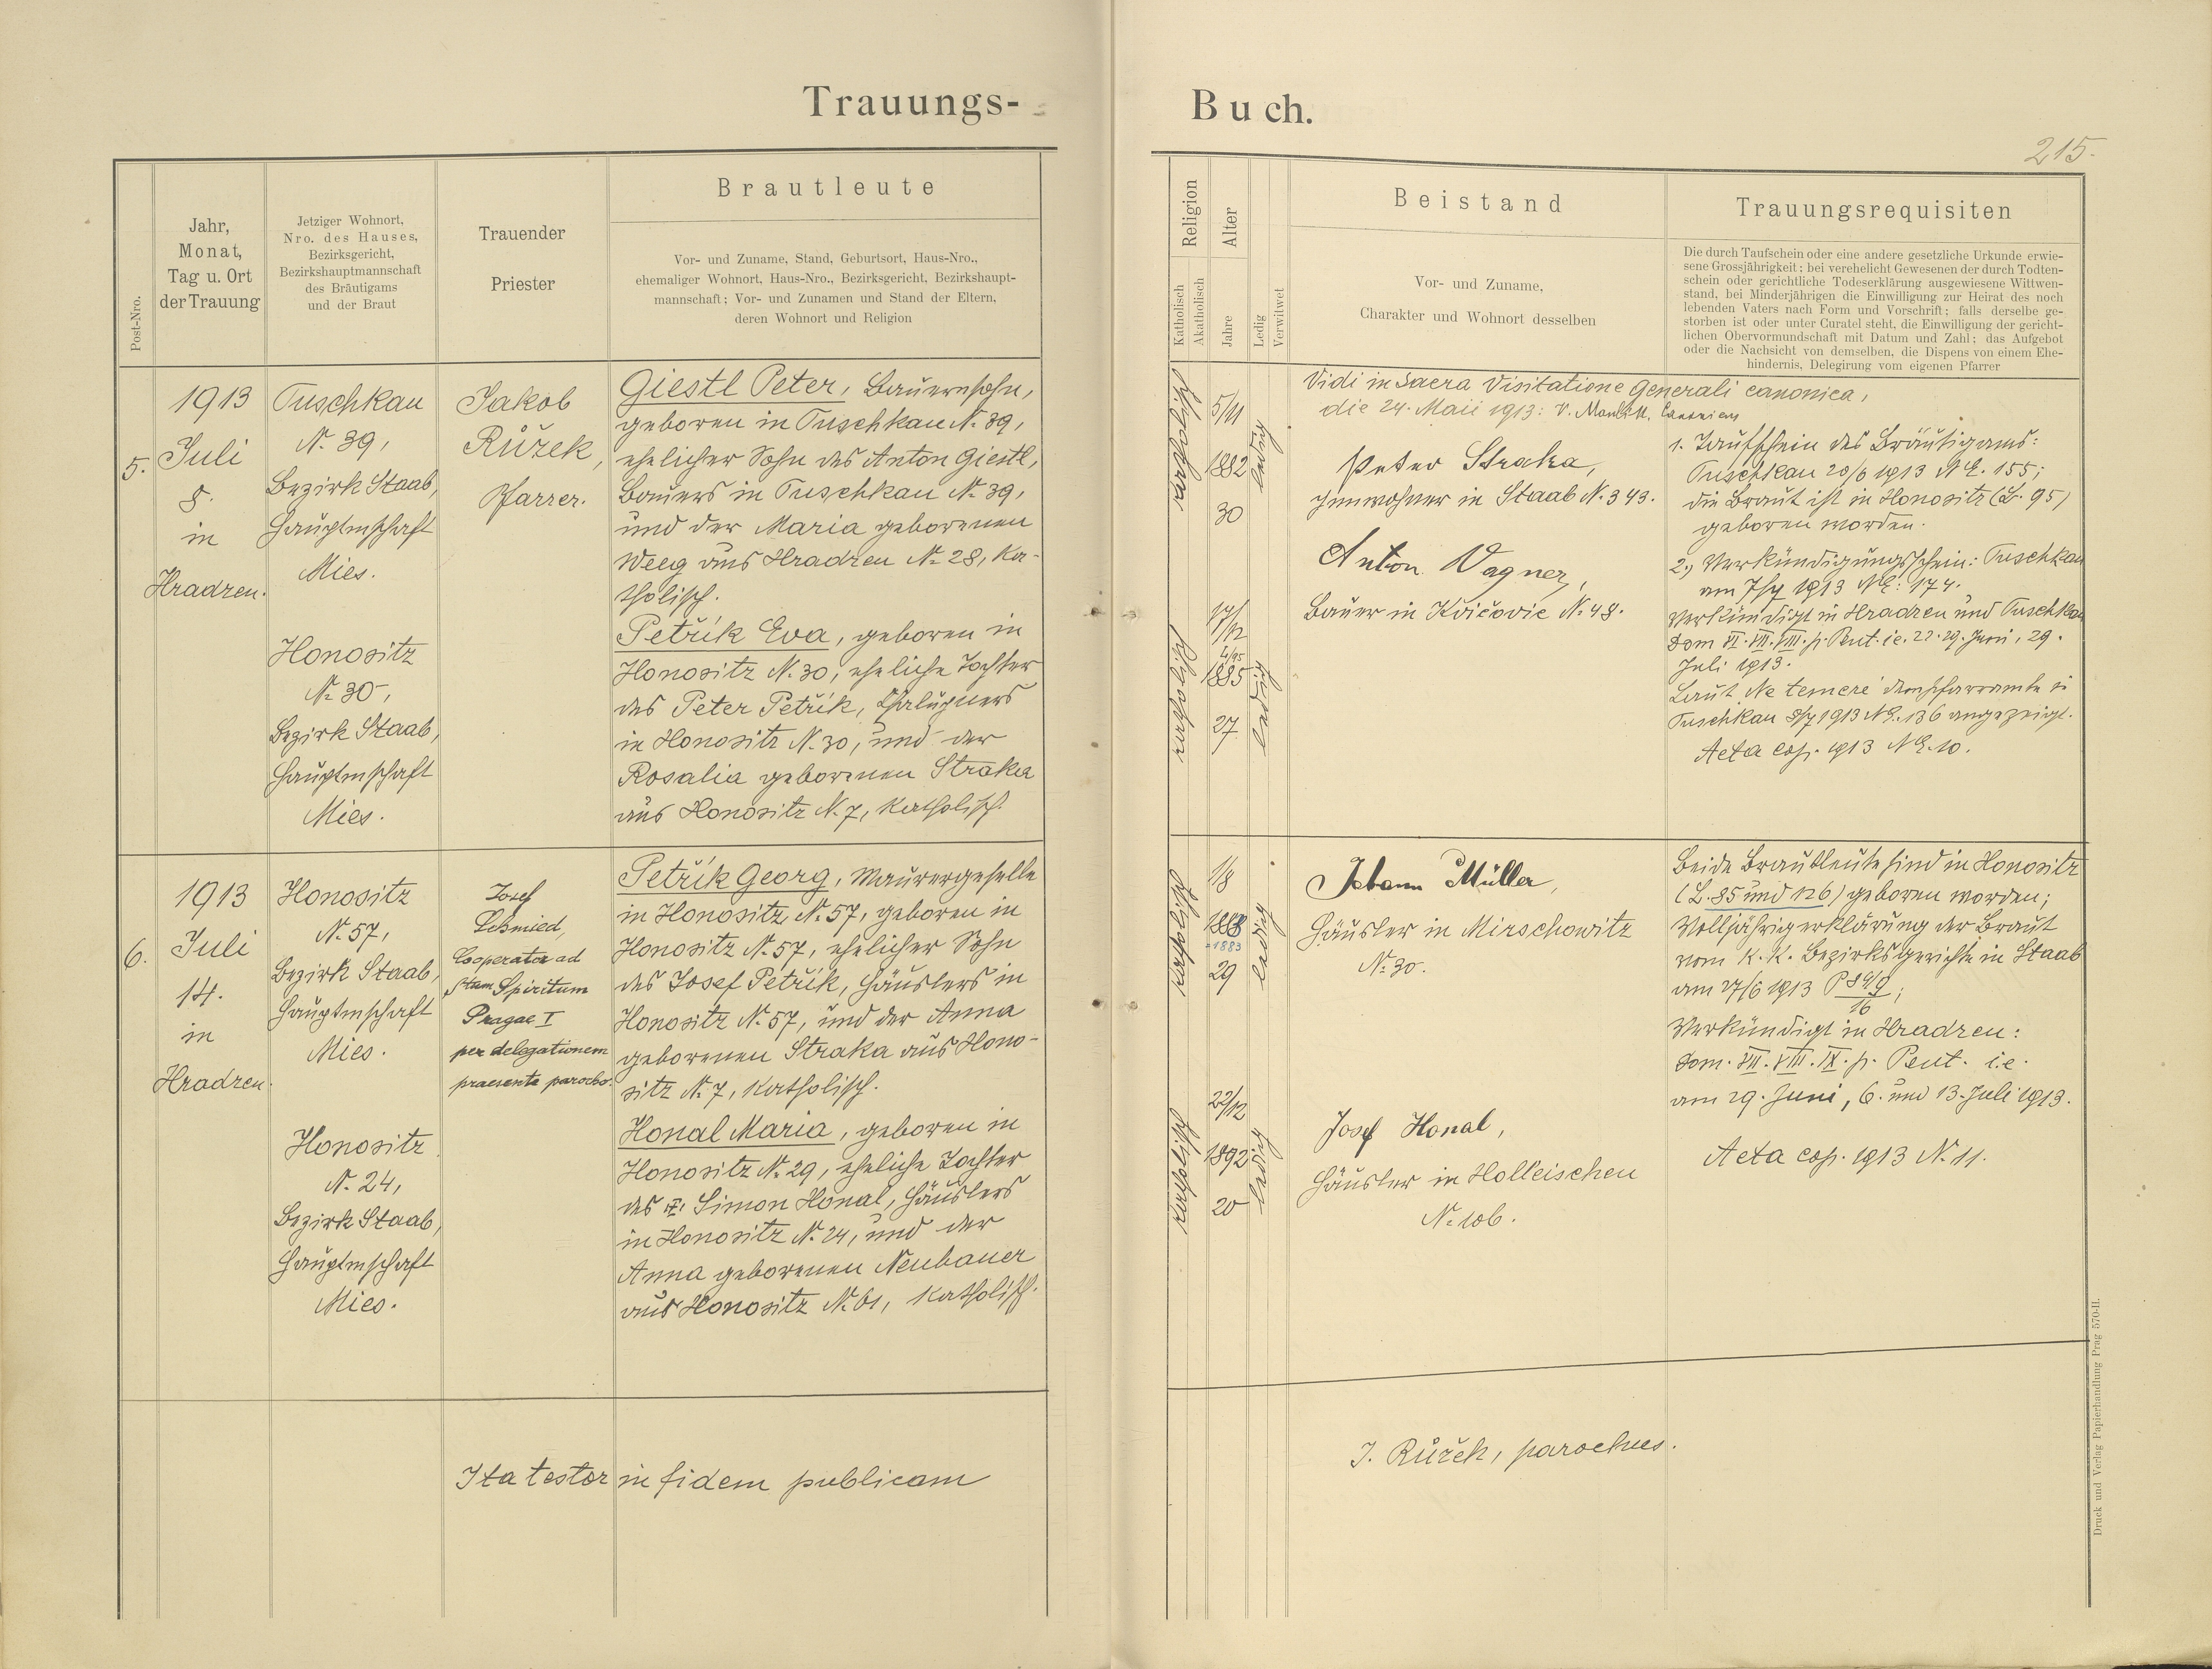 Trauungs-
Buch.
215.
Post-Nro.
Jahr,
Monat,
Tag u. Ort
der Trauung
Jetziger Wohnort,
Nro. des Hauses,
Bezirksgericht,
Bezirkshauptmannschaft
des Bräutigams
und der Braut
Trauender
Priester
Brautleute
Vor- und Zuname, Stand, Geburtsort, Haus-Nro.,
ehemaliger Wohnort, Haus-Nro., Bezirksgericht, Bezirkshaupt-
mannschaft; Vor- und Zunamen und Stand der Eltern,
deren Wohnort und Religion
Religion
Katholisch
Akatholisch
Alter
Jahre
Ledig
Verwitwet
Beistand
Vor- und Zuname,
Charakter und Wohnort desselben
Trauungsrequisiten
Die durch Taufschein oder eine andere gesetzliche Urkunde erwie-
sene Grossjährigkeit; bei verehelicht Gewesenen der durch Todten-
schein oder gerichtliche Todeserklärung ausgewiesene Wittwen-
stand, bei Minderjährigen die Einwilligung zur Heirat des noch
lebenden Vaters nach Form und Vorschrift; falls derselbe ge-
storben ist oder unter Curatel steht, die Einwilligung der gericht-
lichen Obervormundschaft mit Datum und Zahl; das Aufgebot
oder die Nachsicht von demselben, die Dispens von einem Ehe-
hindernis, Delegirung vom eigenen Pfarrer
5.
1913
Juli
8.
in
Hradzen.
Tuschkau
№ 39,
Bezirk Staab,
Hauptmschaft
Mies.
Honositz
№ 30,
Bezirk Staab,
Hauptmschaft
Mies.
Jakob
Růžek,
Pfarrer.
Giestl Peter, Bauernsohn,
geboren in Tuschkau N. 39,
ehelicher Sohn des Anton Giestl,
Bauers in Tuschkau № 39,
und der Maria geborenen
Weeg aus Hradzen № 28, ka-
tholisch.
Petřík Eva, geboren in
Honositz N. 30, eheliche Tochter
des Peter Petřík, Chalupners
in Honositz N. 30, und der
Rosalia geborenen Straka
aus Honositz N. 7, katholisch.
katholisch
5/11
1882
30
ledig
katholisch
17/12
1885
27
ledig
Vidi in Sacra Visitatione Generali canonica,
die 24. Maii 1913: V.
Peter Straka,
Innwohner in Staab N. 343.
Anton Wagner,
Bauer in Kvíčovic № 48.
1. Taufschein des Bräutigams:
Tuschkau 20/6 1913 NE. 155;
die Braut ist in Honositz (L. 95)
geboren worden.
2., Verkündigungsschein: Tuschkau
am 7/7 1913 NE: 174.
Verkündigt in Hradzen und Tuschkau
Dom VI. VII. VIII. p. Pent. i.e. 22. 29. Juni, 29.
Juli 1913.
Laut Ne temere dem Pfarramte in
Tuschkau 8/7 1913 NE. 136 angezeigt.
Acta cop. 1913 NE. 10.
6.
1913
Juli
14.
in
Hradzen.
Honositz
№ 57,
Bezirk Staab,
Hauptmschaft
Mies.
Honositz
№ 24,
Bezirk Staab,
Hauptmschaft
Mies.
Josef
Schmied,
Cooperator ad
Stam Spiritum
Pragae I
per delegationem
praesente parocho.
Petřík Georg, Maurergeselle
in Honositz, № 57, geboren in
Honositz № 57, ehelicher Sohn
des Josef Petřík, Häuslers in
Honositz № 57, und der Anna
geborenen Straka aus Hono-
sitz № 7, katholisch.
Honal Maria, geboren in
Honositz № 29, eheliche Tochter
des Simon Honal, Häuslers
in Honositz № 24, und der
Anna geborenen Neubauer
aus Honositz № 61, katholisch.
katholisch
1/8
1888
=1883
29
ledig
katholisch
22/12
1892
20
ledig
Johann Müller,
Häusler in Mirschowitz
№ 30.
Josef Honal,
Häusler in Holleischen
№ 106.
Beide Brautleute sind in Honositz
(L. 85 und 126) geboren worden;
Volljährigerklärung der Braut
vom K. K. Bezirksgerichte in Staab
am 27/6 1913 P 84/9
16;
Verkündigt in Hradzen:
Dom. VII. VIII. IX. p. Pent. i.e.
am 29. Juni, 6. und 13. Juli 1913.
Acta cop. 1913 N. 11.
Ita testor in fidem publicam
J. Růžek, parochus.
Druck und Verlag Papierhandlung Prag 570-II.